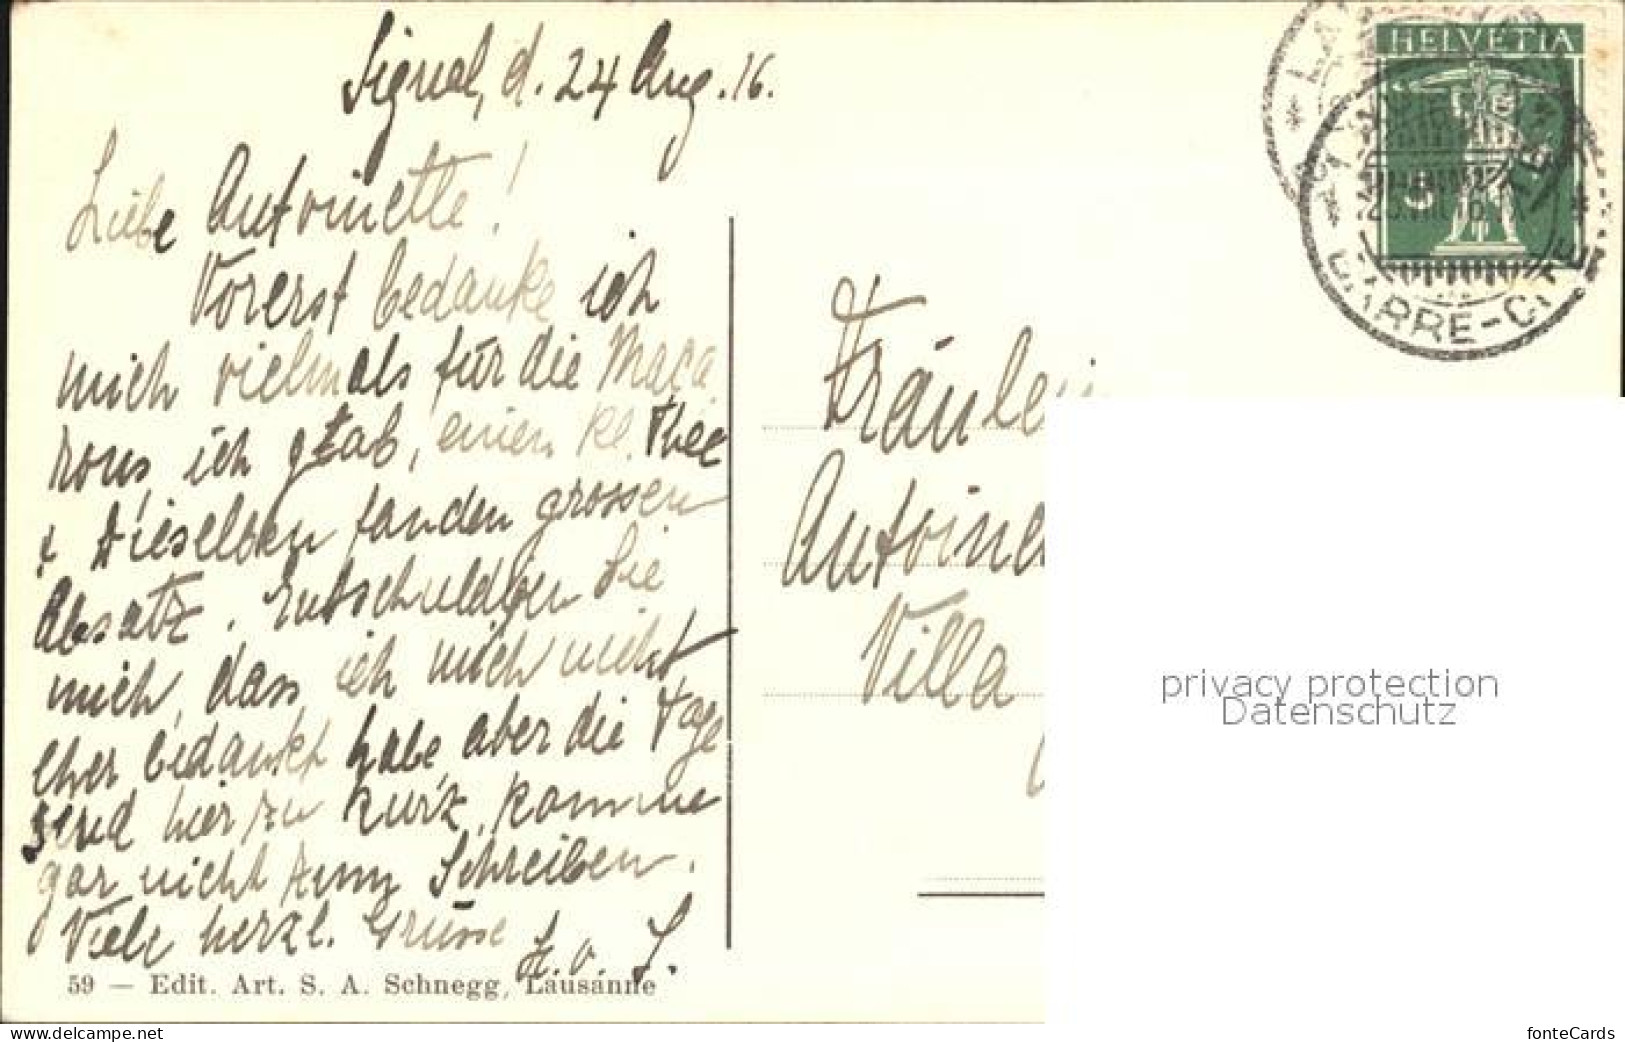 Signal, d. 24 Aug. 16.
Liebe Antoinette!
Vorerst bedanke ich
mich vielmals für die Maca
rons, ich gab, einen kl. Thee
& Dieselben fanden grossen
Absatz. Entschuldigen Sie
mich, dass ich mich nicht
eher bedankt habe aber die Tage
send hier zu kurz, komme
gar nicht zum Schreiben.
Viele herzl. Grüsse
59 — Edit. Art. S. A. Schnegg, Lausanne
HELVETIA
5
Fräulein
Antoine
Villa
privacy protection
Datenschutz
www.delcampe.net
Ak-Ansichtskarten
fonteCards